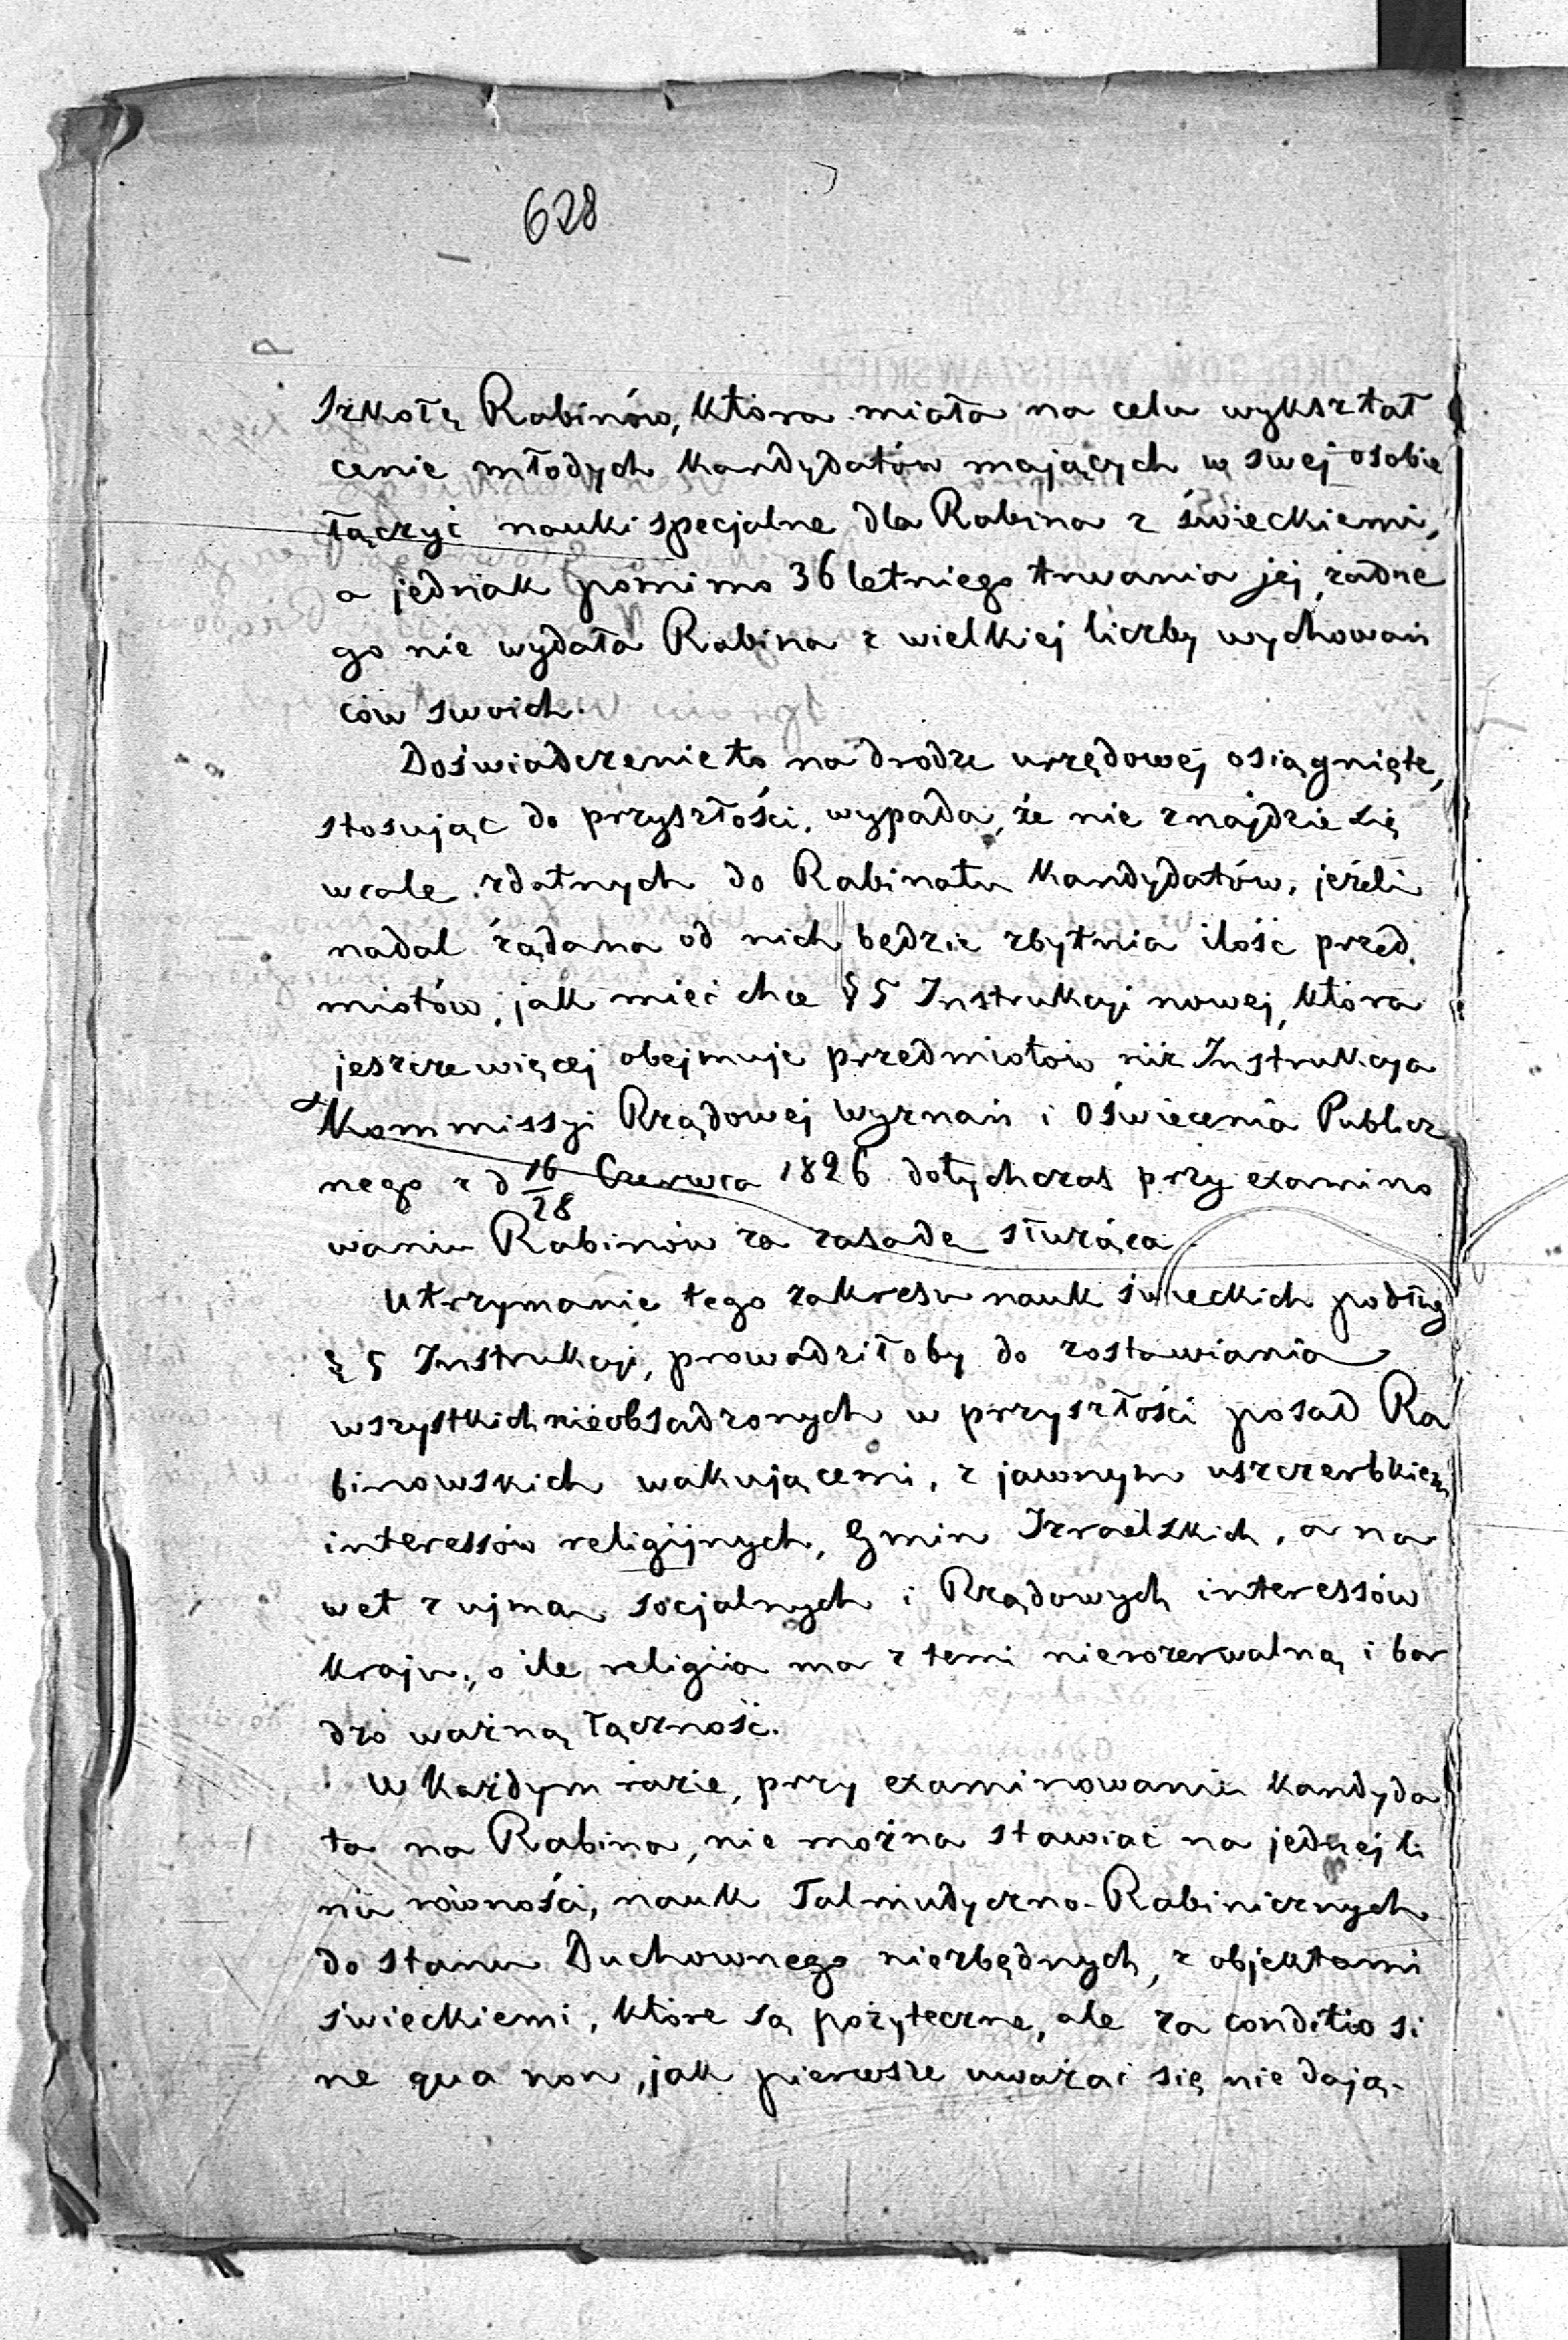 628
Szkołę Rabinów, która miała na celu wykształ
cenie młodych kandydatów mających w swej osobie
łączyć nauki specjalne dla Rabina z świeckiemi,
a jednak pomimo 36 letniego trwania jej, żadne
go nie wydała Rabina z wielkiej liczby wychowań
ców swoich.
Doświadczenie to na drodze urzędowej osiągnięte,
stosując do przyszłości, wypada, że nie znajdzie się
wcale zdatnych do Rabinatu kandydatów, jeżeli
nadal żądana od nich będzie zbytnia ilość przed
miotów, jak mieć chce § 5 Instrukcyi nowej, która
jeszcze więcej obejmuje przedmiotów niż Instrukcya
Kommissyi Rządowej Wyznań i Oświecenia Publicz
nego z d 16/28 Czerwca 1826 dotychczas przy examino
waniu Rabinów za zasadę służąca.
Utrzymanie tego zakresu nauk świeckich podług
§ 5 Instrukcyi, prowadziłoby do zostawiania
wszystkich nieobsadzonych w przyszłości posad Ra
binowskich wakującemi, z jawnym uszczerbkiem
interessów religijnych, Gmin Izraelskich, a na
wet z ujmą socjalnych i Rządowych interessów
kraju, o ile religiia ma z temi nierozerwalną i bar
dzo ważną łączność.
W każdym razie, przy examinowaniu kandyda
ta na Rabina, nie można stawiać na jednej li
nii równości, nauk Talmudyczno-Rabinicznych
do stanu Duchownego niezbędnych, z objektami
świeckiemi, które są pożyteczne, ale za conditio si
ne qua non, jak pierwsze uważać się nie dają.